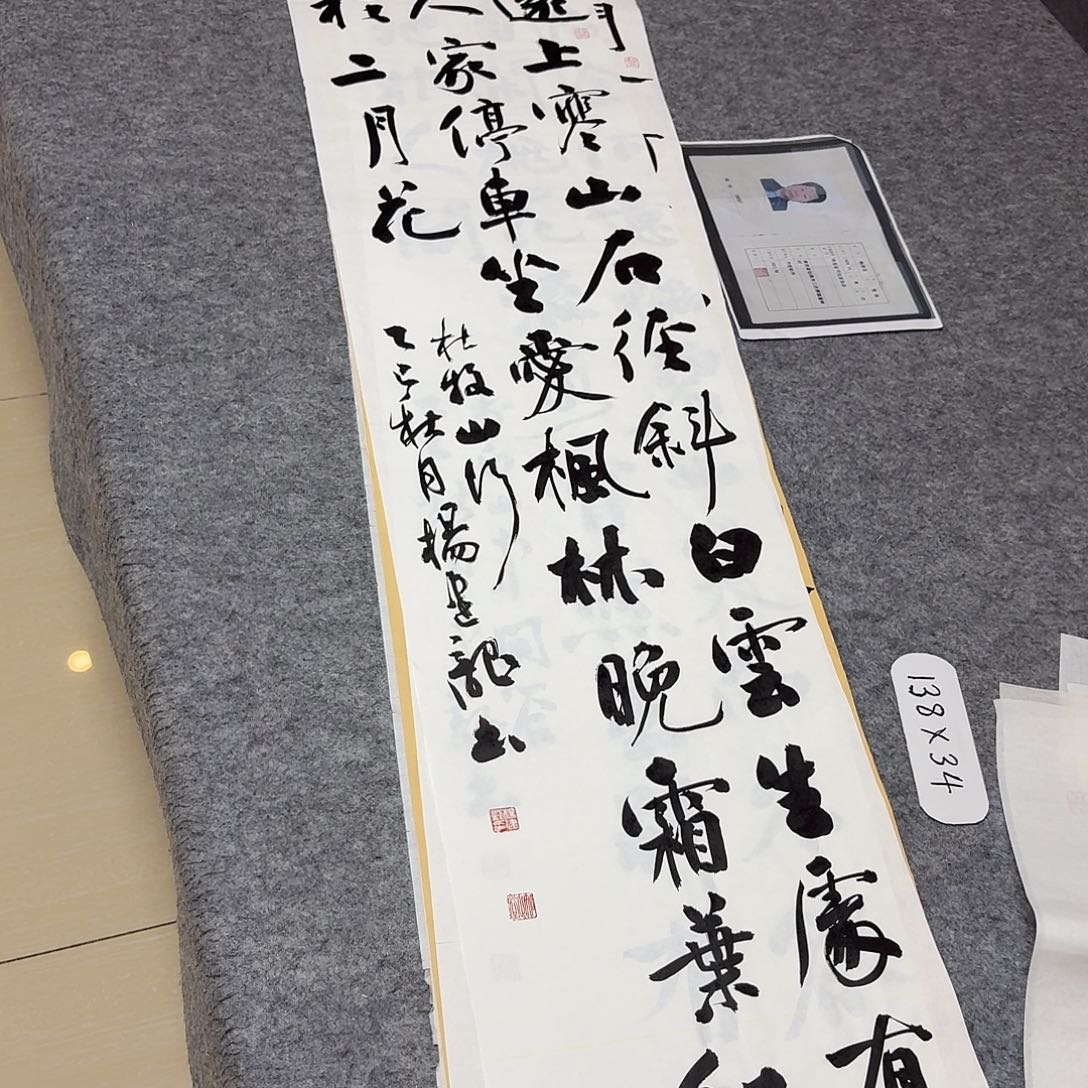 遠上寒山石徑斜白雲生處有
人家停車坐愛楓林晚霜葉紅
於二月花
杜牧山行
乙巳桂月楊建龍书
138×34